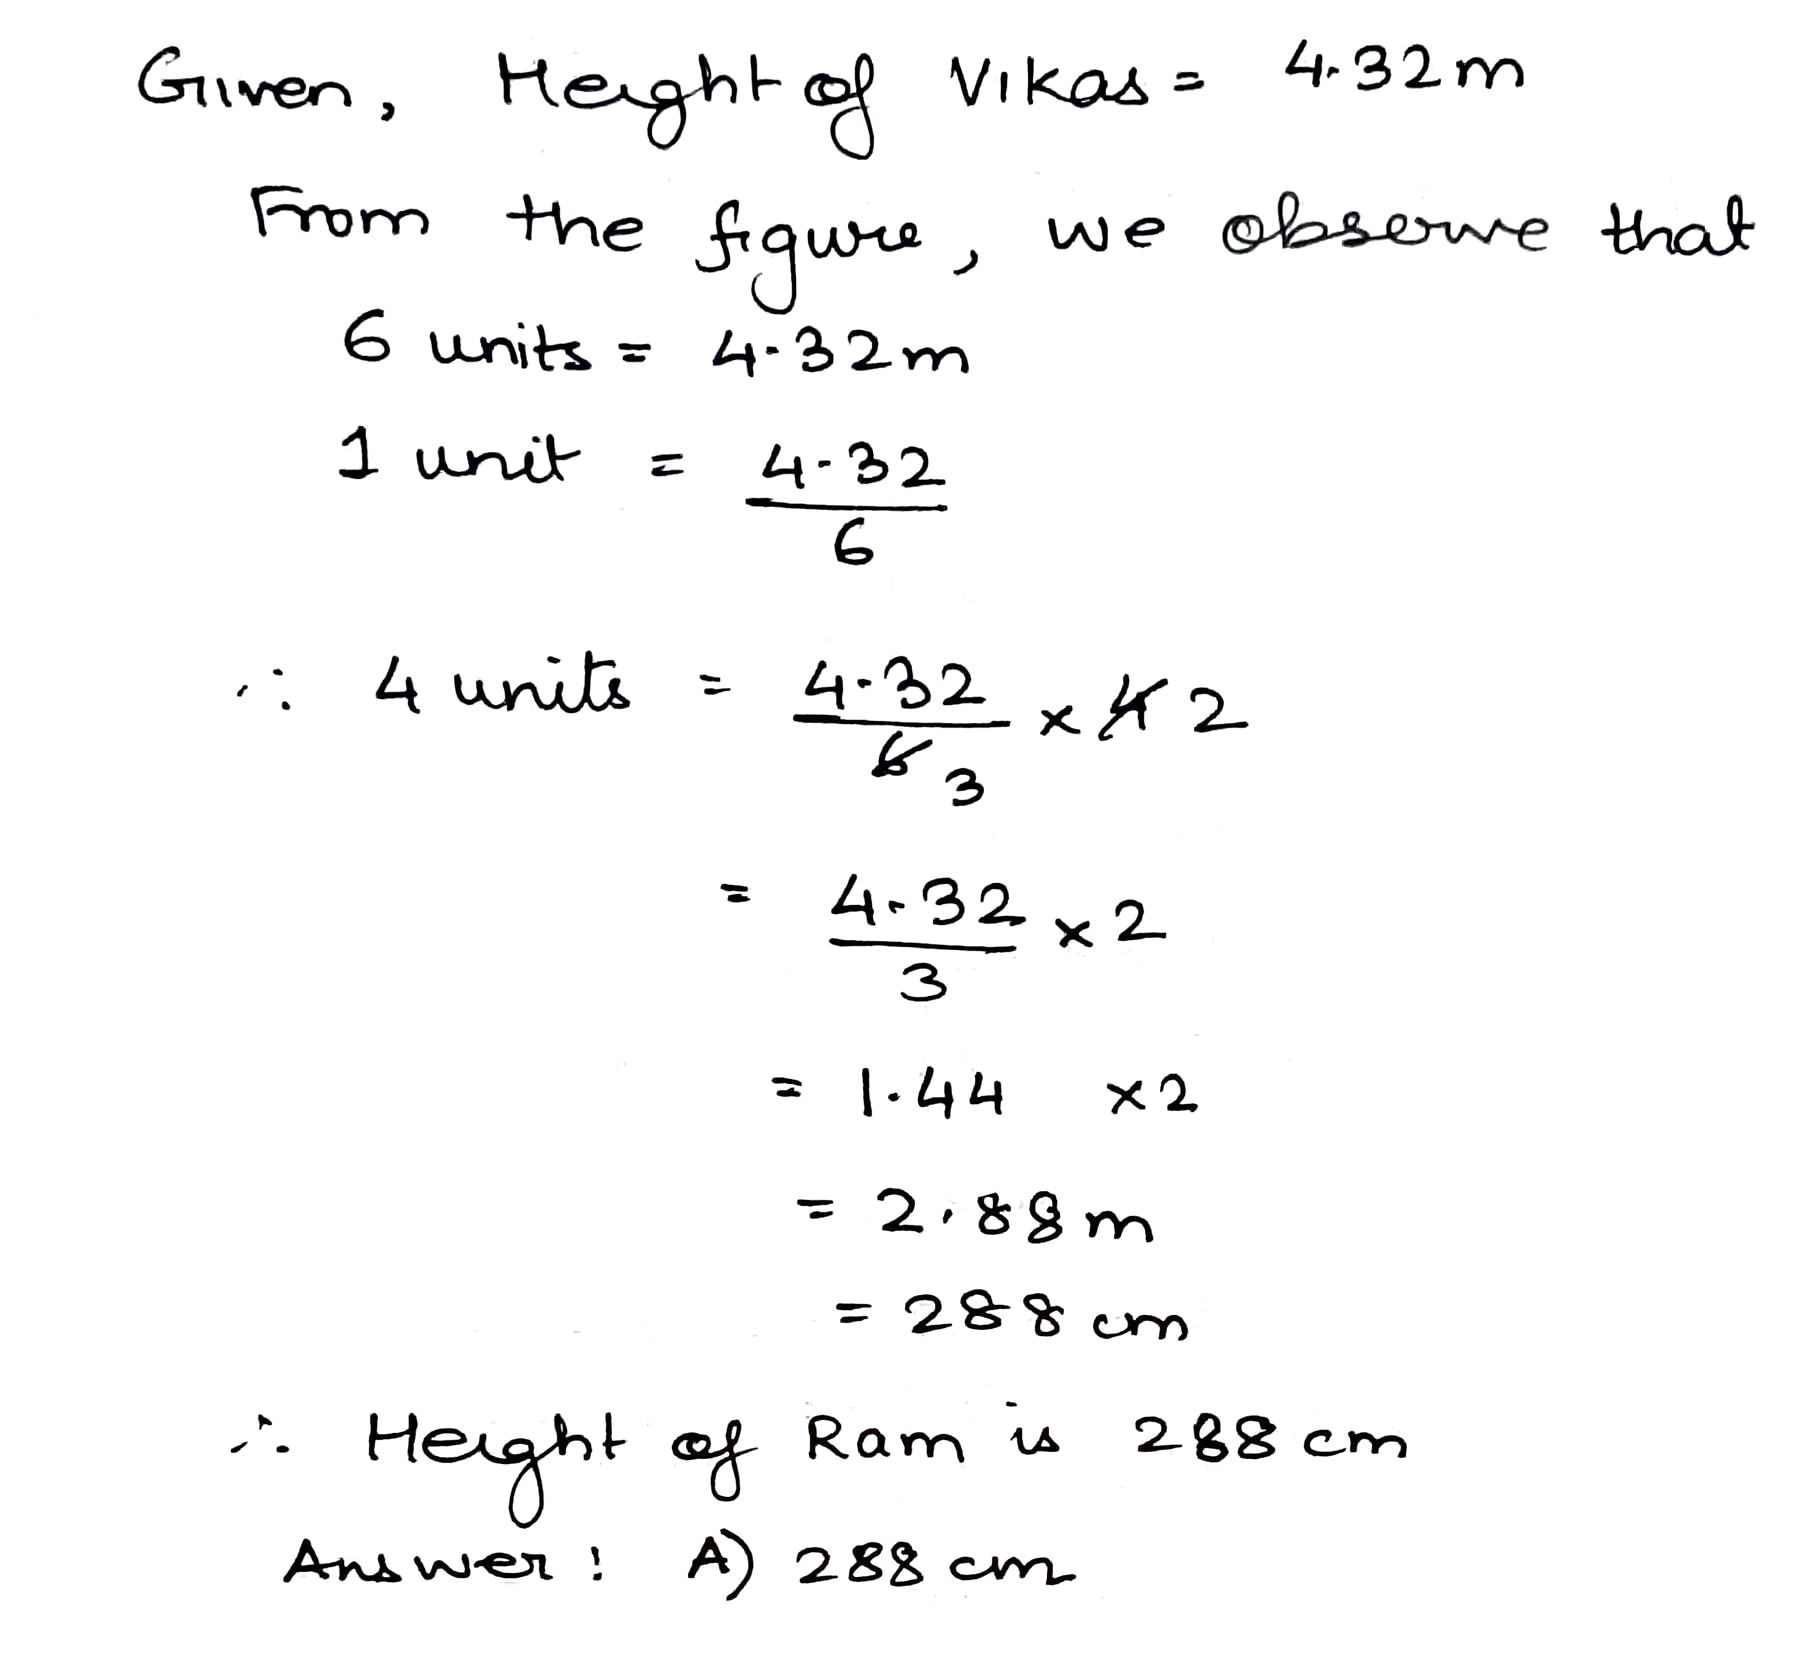 Given, Height of Vikas = 4.32m
From the figure, we observe that
6 units = 4.32m
1 unit = 4.32/6
∴ 4 units = 4.32/6 3 × 4 2
= 4.32/3 × 2
= 1.44 × 2
= 2.88m
= 288 cm
∴ Height of Ram is 288 cm
Answer: A) 288 cm